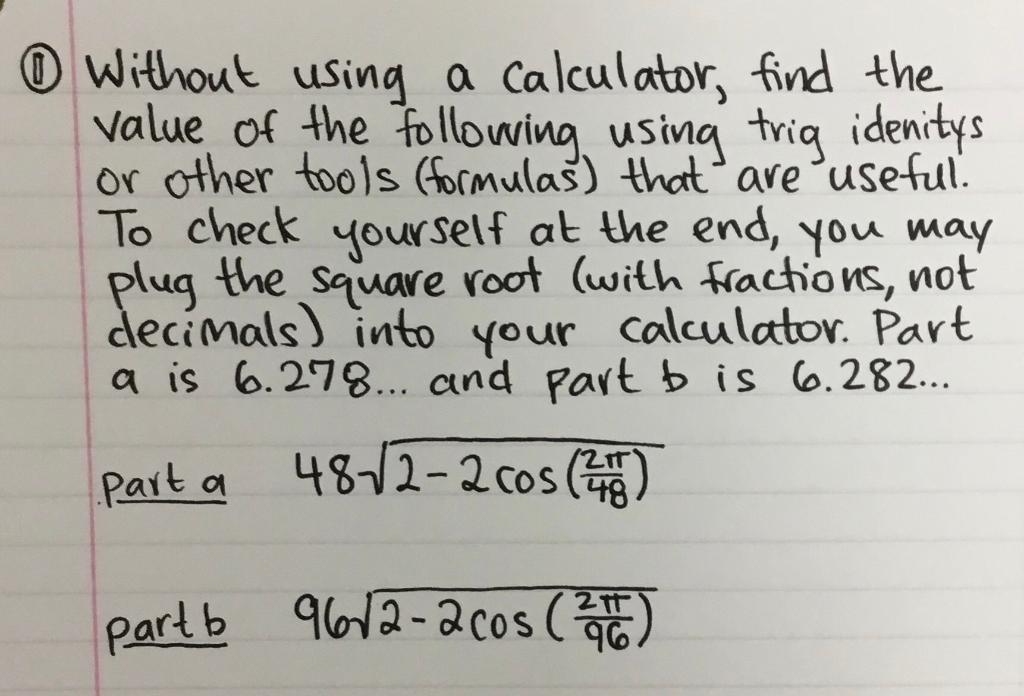 ① Without using a calculator, find the
value of the following using trig idenitys
or other tools (formulas) that are useful.
To check yourself at the end, you may
plug the square root (with fractions, not
decimals) into your calculator. Part
a is 6.278... and part b is 6.282...
part a 48√(2-2cos(2π/48))
part b 96√(2-2cos(2π/96))